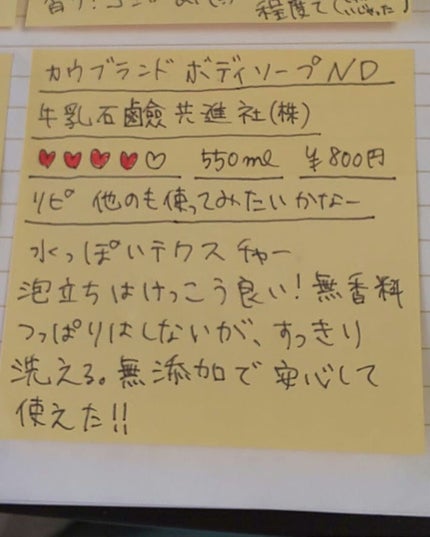 程度で(
カウブランド ボディソープND
牛乳石鹼共進社(株)
♥♥♥♥♡ 550ml ¥800円
リピ 他のも使ってみたいかなー
水っぽいテクスチャー
泡立ちはけっこう良い!無香料
つっぱりはしないが、すっきり
洗える。無添加で安心して
使えた!!